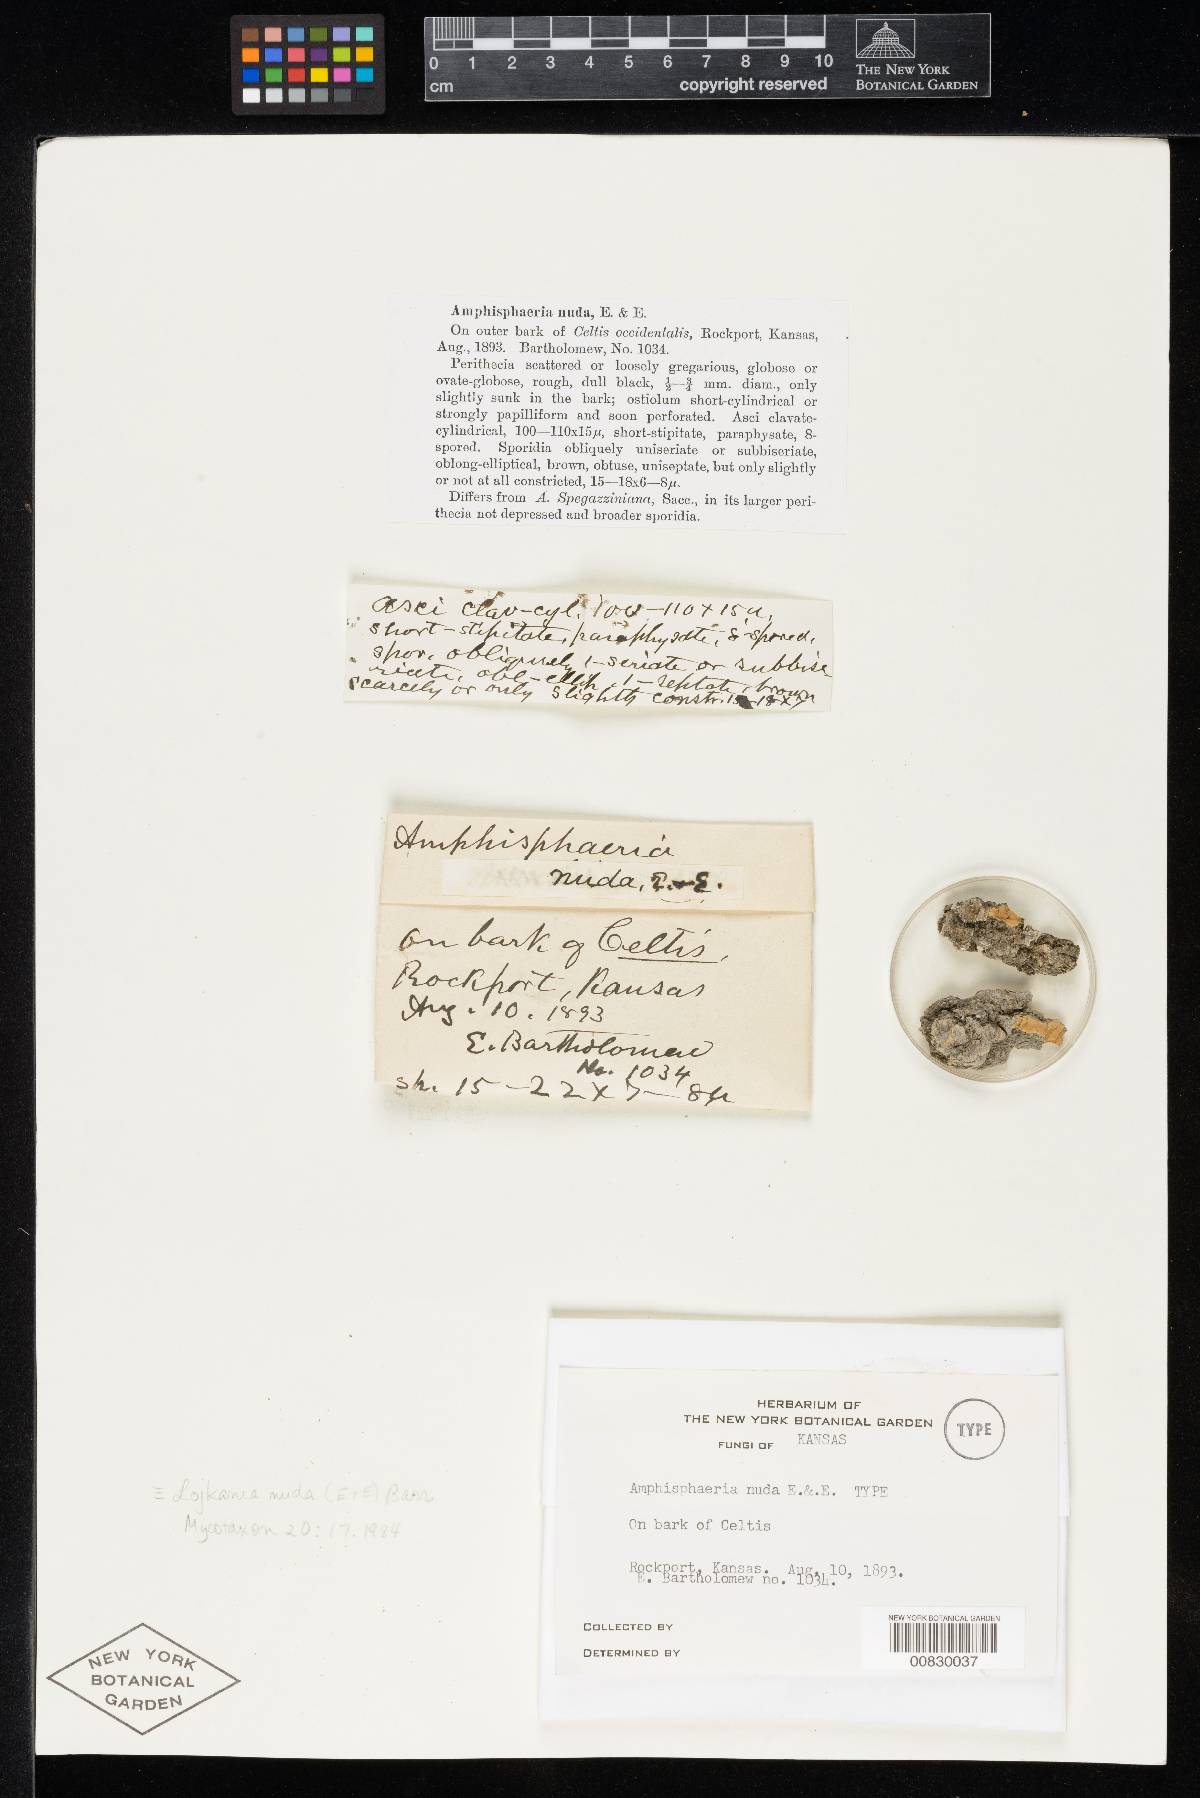 0 1 2 3 4 5 6 7 8 9 10
cm
copyright reserved
THE NEW YORK
BOTANICAL GARDEN
Amphisphaeria nuda, E. & E.
On outer bark of Celtis occidentalis, Rockport, Kansas,
Aug., 1893. Bartholomew, No. 1034.
Perithecia scattered or loosely gregarious, globose or
ovate-globose, rough, dull black, ½—¾ mm. diam., only
slightly sunk in the bark; ostiolum short-cylindrical or
strongly papilliform and soon perforated. Asci clavate-
cylindrical, 100—110x15µ, short-stipitate, paraphysate, 8-
spored. Sporidia obliquely uniseriate or subbiseriate,
oblong-elliptical, brown, obtuse, uniseptate, but only slightly
or not at all constricted, 15—18x6—8µ.
Differs from A. Spegazziniana, Sacc., in its larger peri-
thecia not depressed and broader sporidia.
asci clav-cyl. 100-110 x 15 µ,
short-stipitate, paraphysate, 8-spored,
spor. obliquely 1-seriate or subbise
riate, obl-ellip. 1-septate, brown
scarcely or only slightly constr. 15-18 x 7
Amphisphaeria
nuda, E. & E.
on bark of Celtis,
Rockport, Kansas
Aug. 10. 1893
E. Bartholomew
No. 1034
sp. 15-22 x 7-8µ
HERBARIUM OF
THE NEW YORK BOTANICAL GARDEN
FUNGI OF KANSAS
TYPE
Amphisphaeria nuda E.&.E. TYPE
On bark of Celtis
Rockport, Kansas. Aug. 10, 1893.
E. Bartholomew no. 1034.
COLLECTED BY
DETERMINED BY
NEW YORK BOTANICAL GARDEN
00830037
≡ Lojkania nuda (E+E) Barr
Mycotaxon 20: 17. 1984
NEW YORK
BOTANICAL
GARDEN